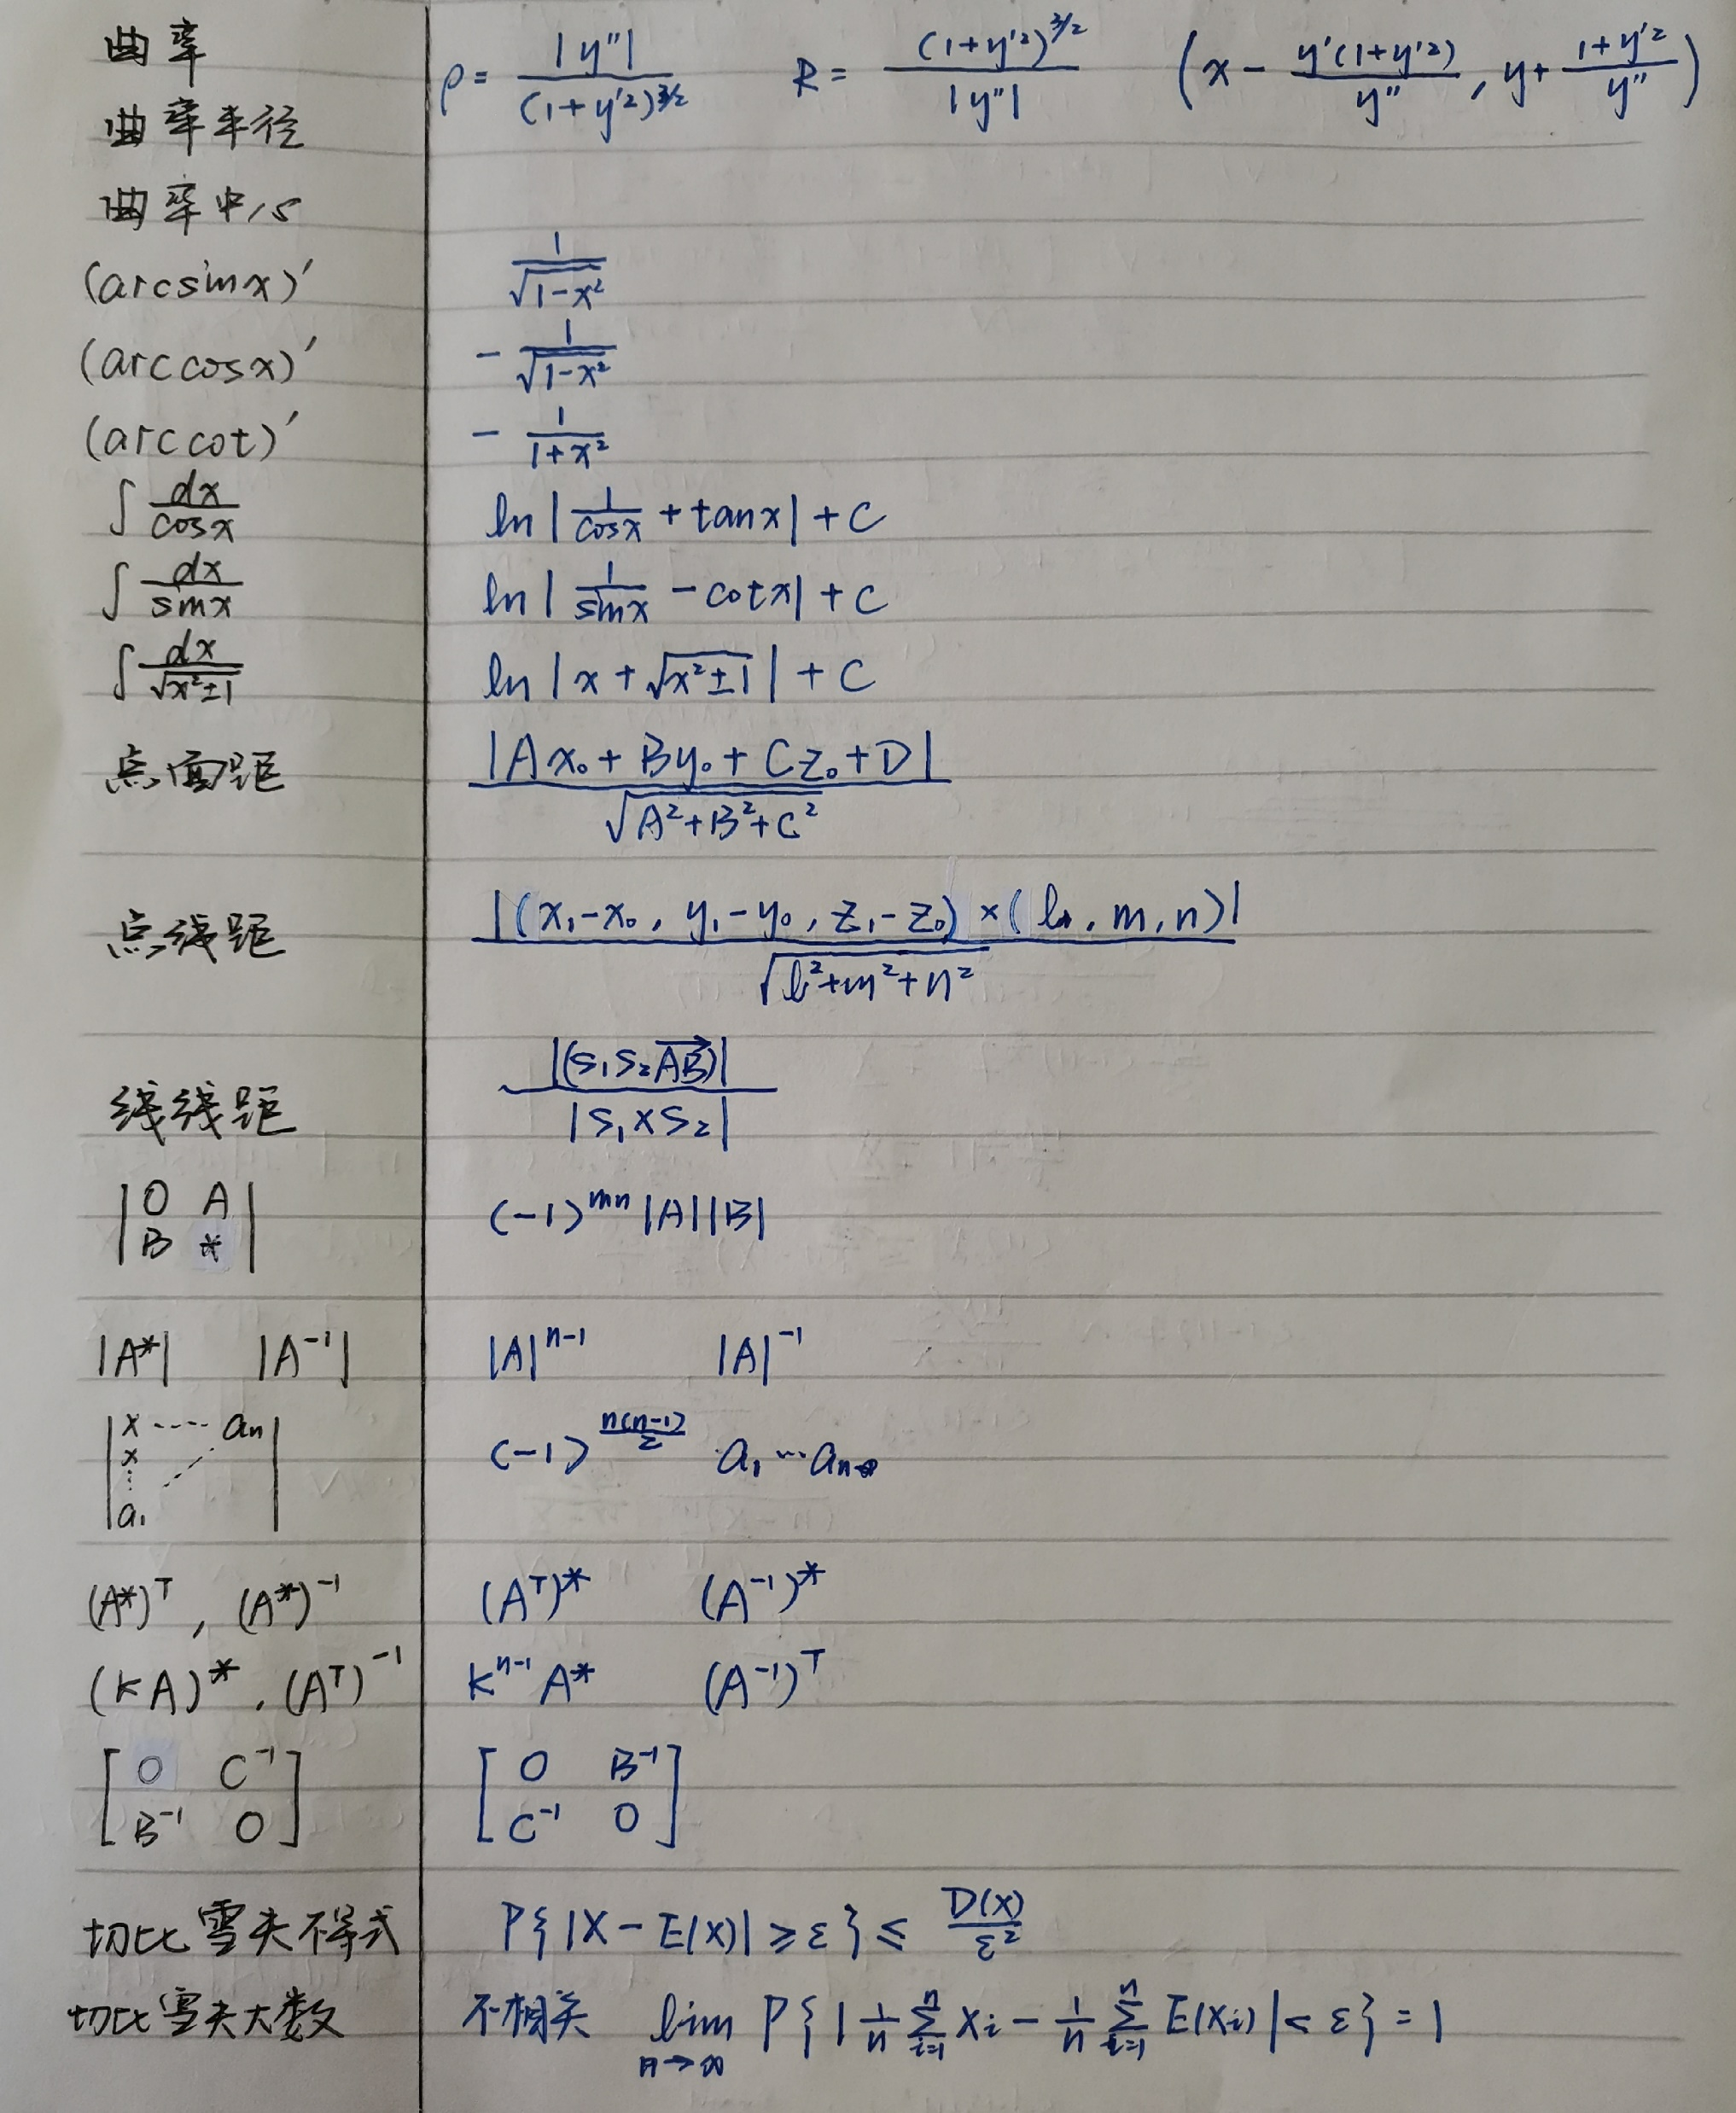 曲率 ρ = |y''| / (1+y'²)^{3/2} R = (1+y'²)^{3/2} / |y''| (x - y'(1+y'²)/y'', y + (1+y'²)/y'')
曲率半径
曲率中心
(arcsinx)' 1/√(1-x²)
(arccosx)' - 1/√(1-x²)
(arccot)' - 1/(1+x²)
∫ dx/cosx ln|1/cosx + tanx| + C
∫ dx/sinx ln|1/sinx - cotx| + C
∫ dx/√(x²±1) ln|x + √(x²±1)| + C
点面距 |Ax₀ + By₀ + Cz₀ + D| / √(A²+B²+C²)
点线距 |(x₁-x₀, y₁-y₀, z₁-z₀) × (l, m, n)| / √(l²+m²+n²)
线线距 |(s₁s₂AB→)| / |s₁×s₂|
|O A; B *| (-1)^{mn} |A||B|
|A*| |A⁻¹| |A|^{n-1} |A|⁻¹
|x ---- aₙ; x; ⋮; a₁| (-1)^{n(n-1)/2} a₁…aₙ
(A*)ᵀ, (A*)⁻¹ (Aᵀ)* (A⁻¹)*
(kA)*, (Aᵀ)⁻¹ k^{n-1}A* (A⁻¹)ᵀ
[O C⁻¹; B⁻¹ O] [O B⁻¹; C⁻¹ O]
切比雪夫不等式 P{|X - E(X)| ≥ ε} ≤ D(X)/ε²
切比雪夫大数 不相关 lim_{n→∞} P{|1/n ∑_{i=1}^{n} Xi - 1/n ∑_{i=1}^{n} E(Xi)| < ε} = 1